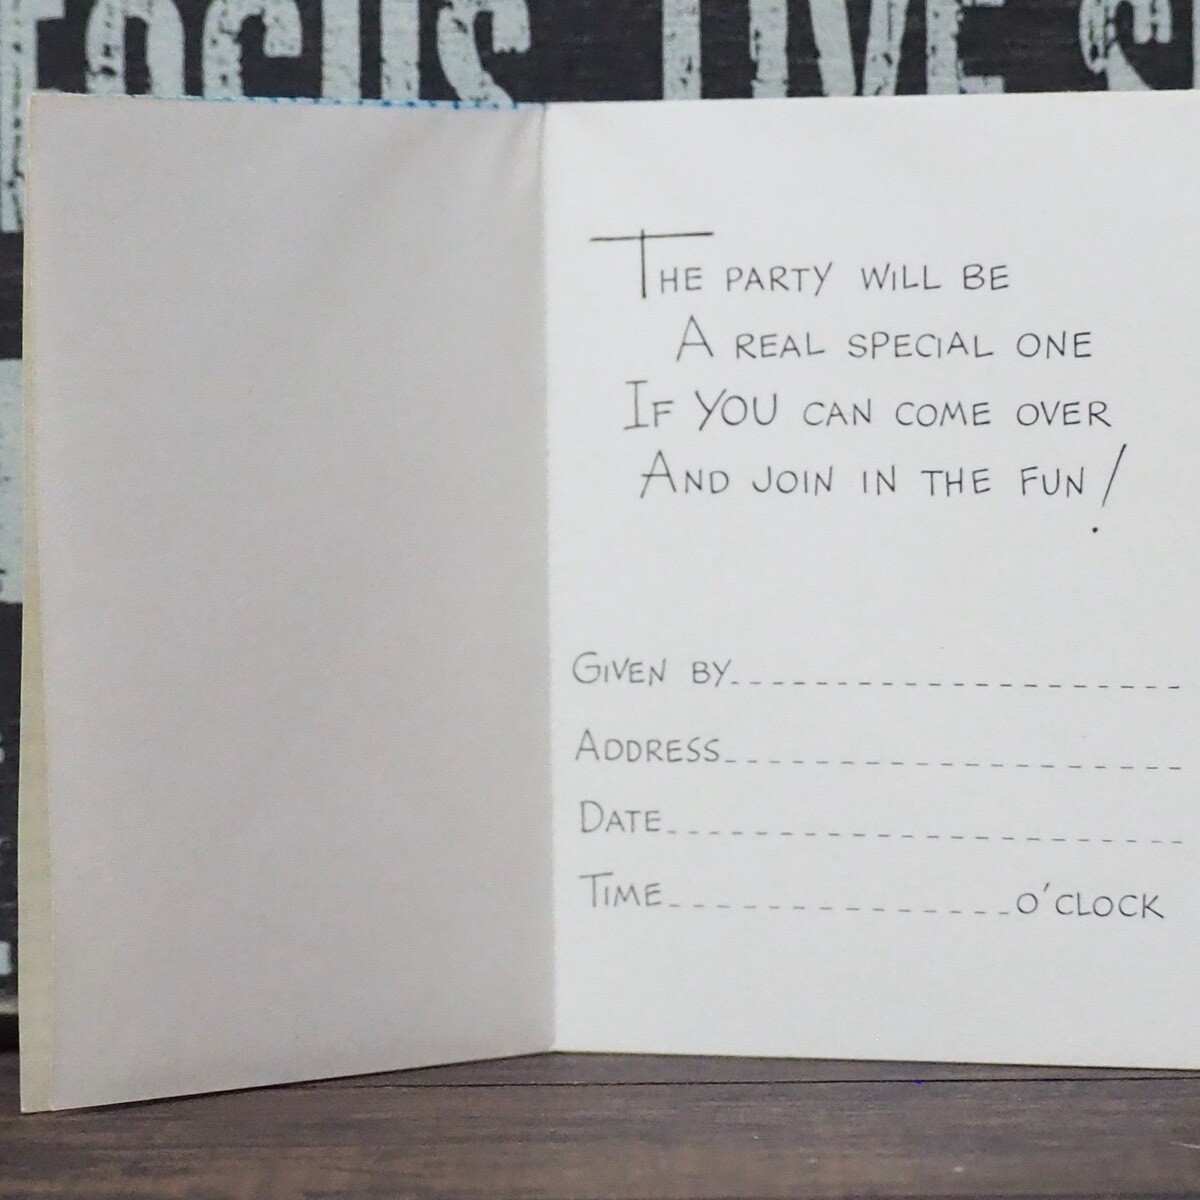 FOCUS LIVE
THE PARTY WILL BE
A REAL SPECIAL ONE
IF YOU CAN COME OVER
AND JOIN IN THE FUN!
GIVEN BY
ADDRESS
DATE
TIME O'CLOCK